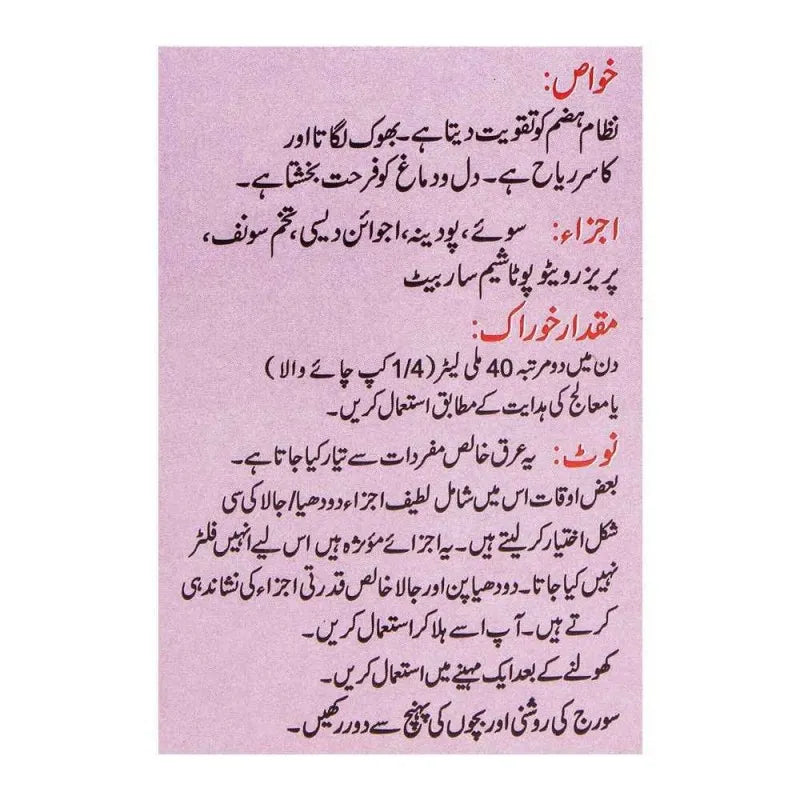 خواص:
نظام ہضم کو تقویت دیتا ہے۔ بھوک لگاتا اور
کاسر ریاح ہے۔ دل و دماغ کو فرحت بخشتا ہے۔
اجزاء: سوئے، پودینہ، اجوائن دیسی، تخم سونف،
پریزرویٹو پوٹاشیم ساربیٹ
مقدار خوراک:
دن میں دو مرتبہ 40 ملی لیٹر (1/4 کپ چائے والا)
یا معالج کی ہدایت کے مطابق استعمال کریں۔
نوٹ: یہ عرق خالص مفردات سے تیار کیا جاتا ہے۔
بعض اوقات اس میں شامل لطیف اجزاء دودھیا/جالا کی سی
شکل اختیار کر لیتے ہیں۔ یہ اجزائے مؤثرہ ہیں اس لیے انہیں فلٹر
نہیں کیا جاتا۔ دودھیا پن اور جالا خالص قدرتی اجزاء کی نشاندہی
کرتے ہیں۔ آپ اسے ہلا کر استعمال کریں۔
کھولنے کے بعد ایک مہینے میں استعمال کریں۔
سورج کی روشنی اور بچوں کی پہنچ سے دور رکھیں۔